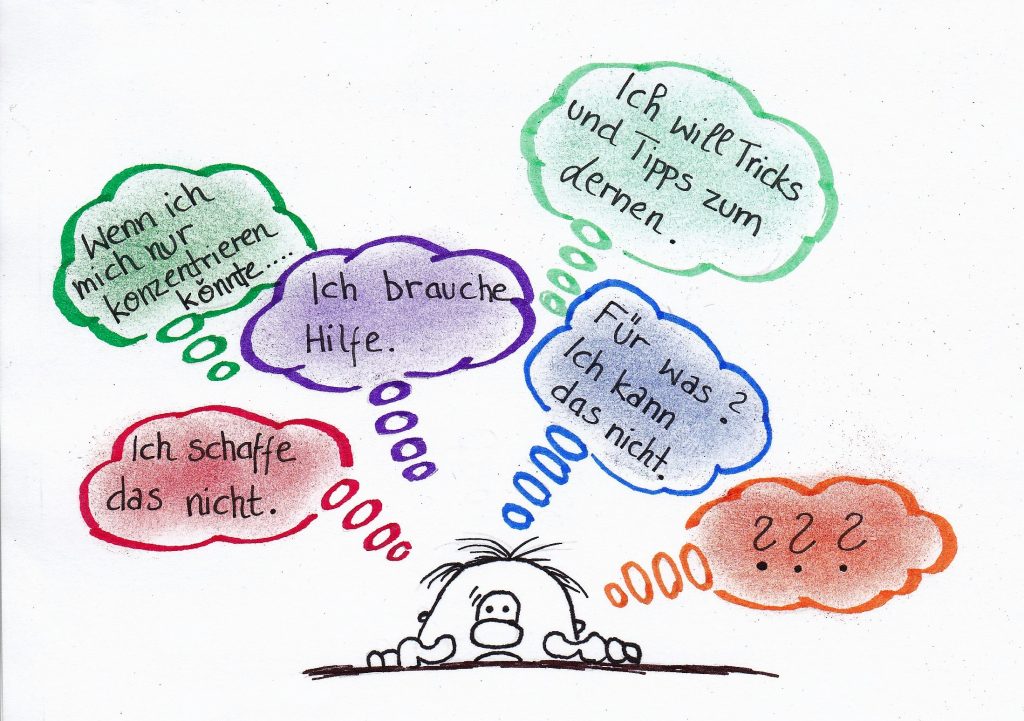 Ich will Tricks
und Tipps zum
dernen.
Wenn ich
mich nur
konzentrieren
könnte....
Ich brauche
Hilfe.
Für was?
Ich kann
das nicht.
Ich schaffe
das nicht.
???